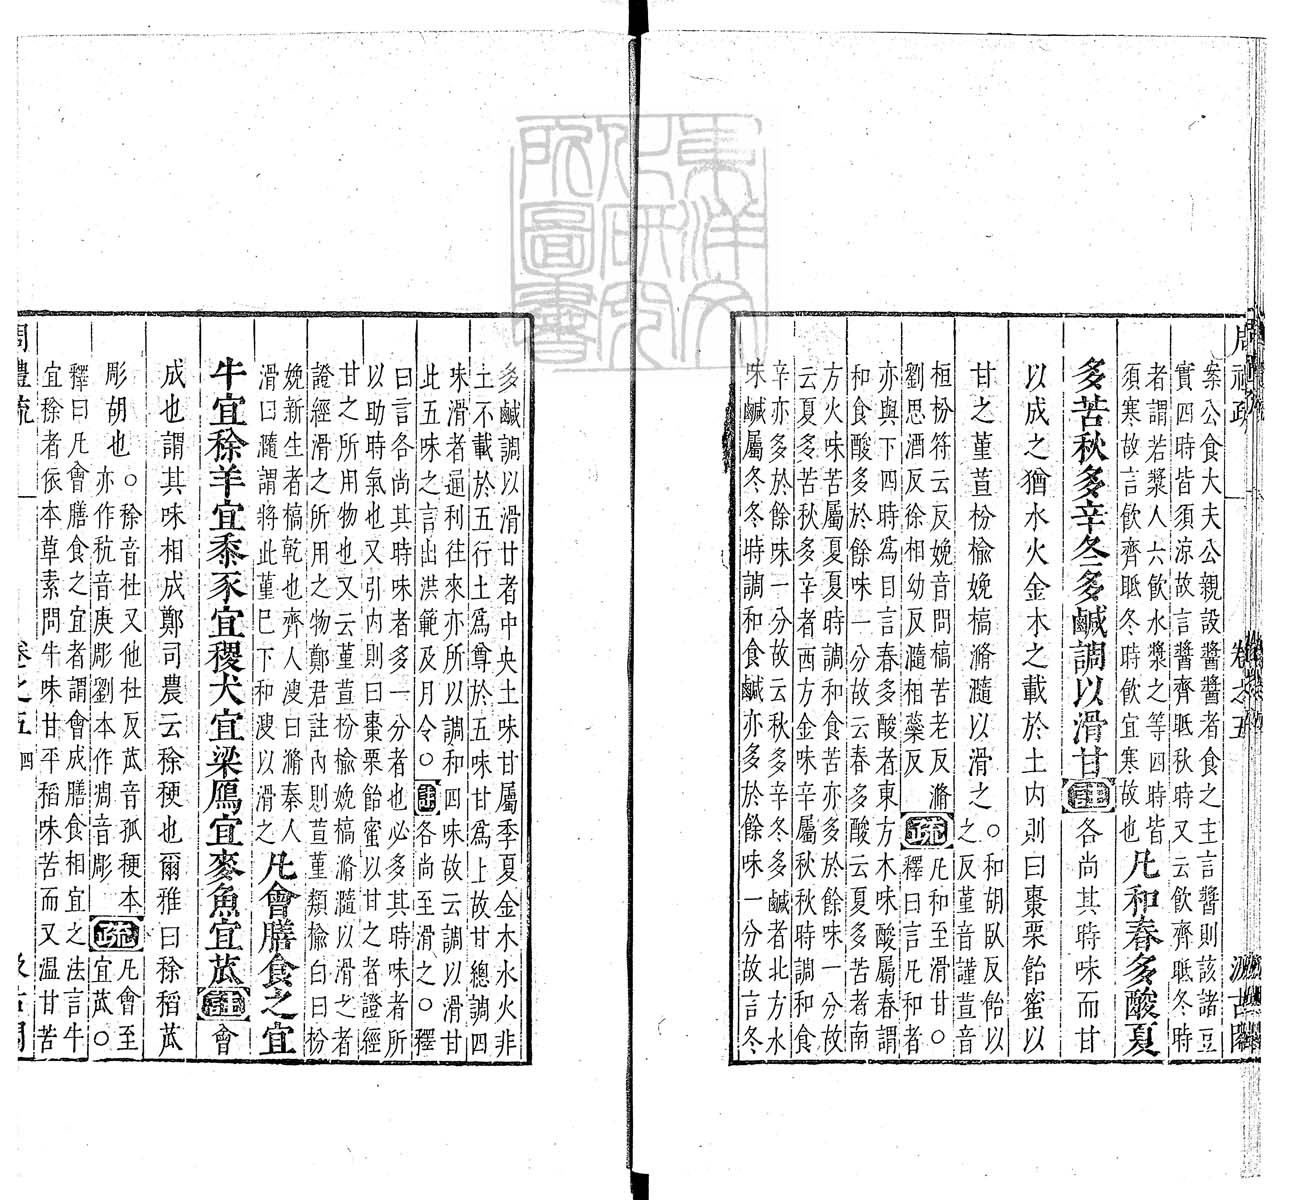 周禮疏
卷之五
汲古閣
案公食大夫公親設醬醬者食之主言醬則該諸豆
實四時皆須涼故言醬齊眡秋時又云飲齊眡冬時
者謂若漿人六飲水漿之等四時皆
須寒故言飲齊眡冬時飲宜寒故也
凡和春多酸夏
多苦秋多辛冬多鹹調以滑甘
註
各尚其時味而甘
以成之猶水火金木之載於土內則曰棗栗飴蜜以
甘之堇荁枌榆娩槁滫瀡以滑之
○和胡臥反飴以
之反堇音謹荁音
桓枌符云反娩音問槁苦老反滫
劉思酒反徐相幼反瀡相藥反
疏
凡和至滑甘○
釋曰言凡和者
亦與下四時爲目言春多酸者東方木味酸屬春謂
和食酸多於餘味一分故云春多酸云夏多苦者南
方火味苦屬夏夏時調和食苦亦多於餘味一分故
云夏多苦云秋多辛者西方金味辛屬秋秋時調和食
辛亦多於餘味一分故云秋多辛冬多鹹者北方水
味鹹屬冬冬時調和食鹹亦多於餘味一分故言冬
多鹹調以滑甘者中央土味甘屬季夏金木水火非
土不載於五行土爲尊於五味甘爲上故甘總調四
味滑者通利往來亦所以調和四味故云調以滑甘
此五味之言出洪範及月令○
註
各尚至滑之○釋
曰言各尚其時味者多一分者也必多其時味者所
以助時氣也又引內則曰棗栗飴蜜以甘之者證經
甘之所用物也又云堇荁枌榆娩槁滫瀡以滑之者
證經滑之所用之物鄭君註內則荁堇類榆白曰枌
娩新生者槁乾也齊人溲曰滫秦人
滑曰瀡謂將此堇已下和溲以滑之
凡會膳食之宜
牛宜稌羊宜黍豕宜稷犬宜粱鴈宜麥魚宜苽
註
會
成也謂其味相成鄭司農云稌稉也爾雅曰稌稻苽
彫胡也
○稌音杜又他杜反苽音孤稉本
亦作秔音庚彫劉本作凋音彫
疏
凡會至
宜苽○
釋曰凡會膳食之宜者謂會成膳食相宜之法言牛
宜稌者依本草素問牛味甘平稻味苦而又溫甘苦
周禮疏
卷之五
四
汲古閣